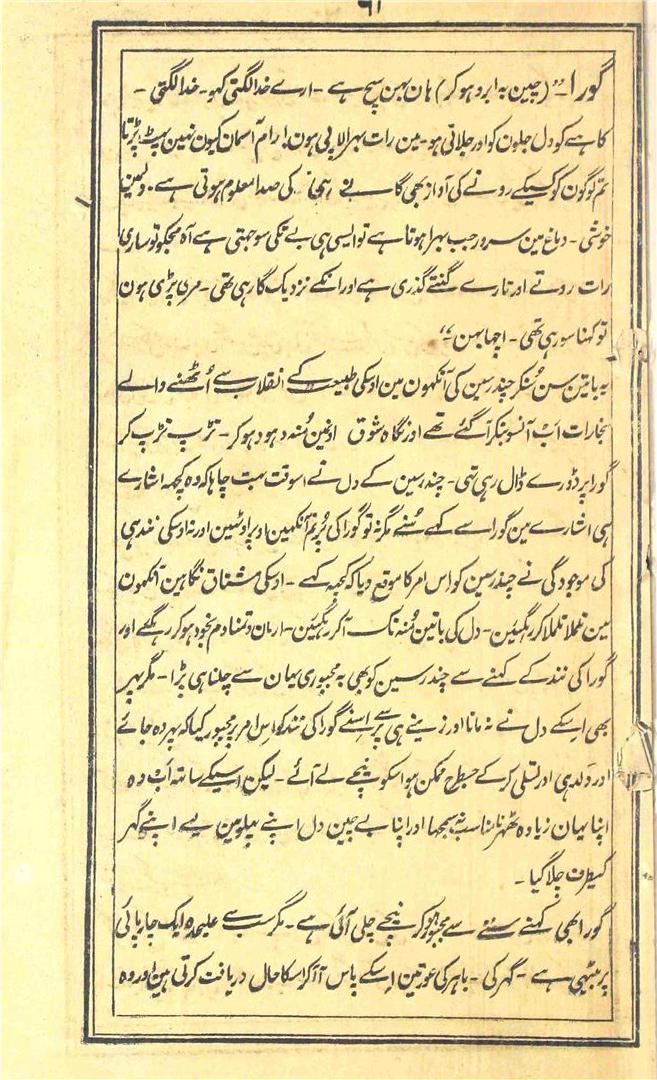 ۶۱
گورا۔ ” (چین بہ ابرو ہوکر) ہان بہن سچ ہے ۔ ارے خدا لگتی کہو ۔ خدا لگتی ۔
کاہے کو دل جلون کو اور جلاتی ہو ۔ مین رات بہر الاپی ہون ! رام آسمان کیون نہین پہٹ پڑتا
تم لوگون کو کسیکے رونے کی آواز بھی گانے ہی کی صدا معلوم ہوتی ہے ۔ دلمین
خوشی ۔ دماغ مین سرور جب بہرا ہوتا ہے تو ایسی ہی بے تکی سوجہتی ہے آہ مجکو تو ساری
رات روتے اور تارے گنتے گذری ہے اور انکے نزدیک گا رہی تھی ۔ مرتی پڑی ہون
تو کہنا سو رہی تھی ۔ اچہا بہن ۔“
یہ باتین سن سُنکر چندرسین کی آنکہون مین اوسکی طبیعت کے انقلاب سے اُٹھنے والے
بخارات اَب آنسو بنکر آگئے تھے اور نگاہ شوق اونہین مُنہ دہو دہوکر ۔ تڑپ تڑپ کر
گورا پر ڈورے ڈال رہی تہی ۔ چندرسین کے دل نے اسوقت بہت چاہا کہ وہ کچہہ اشارے
ہی اشارے مین گورا سے کہے سُنے مگر نہ تو گورا کی پُرنم آنکہین اوپر اوٹہین اور نہ اوسکی نند ہی
کی موجودگی نے چندرسین کو اس امر کا موقع دیا کہ کچہہ کہے ۔ اوسکی مشتاق نگاہین آنکہون
مین تلملا تلملا کر رہگیئن ۔ دل کی باتین مُنہ تک آکر رہگیئن ۔ ارمان و تمنا دم بخود ہوکر رہگئے اور
گورا کی نند کے کہنے سے چندرسین کو بھی بہ مجبوری یہان سے چلنا ہی پڑا ۔ مگر پہر
بھی اسکے دل نے نہ مانا اور زینے ہی پر سے اِسنے گورا کی نند کو اس امر پر مجبور کیا کہ پہر وہ جائے
اور دلدہی اور تسلی کرکے جسطرح ممکن ہو اسکو نیچے لے آئے ۔ لیکن اسیکے ساتہہ اَب وہ
اپنا یہان زیادہ ٹھہرنا مناسب نہ سمجہا اور اپنا بے چین دل اپنے پہلو مین لیے اپنے گہر
کیطرف چلا گیا ۔
گورا بھی کہنے سننے سے مجبور ہوکر نیچے چلی آئی ہے ۔ مگر سب سے علیحدہ ایک چارپائی
پر بیٹہی ہے ۔ گہر کی ۔ باہر کی عورتین اسکے پاس آ آکر اسکا حال دریافت کرتی ہین اور وہ